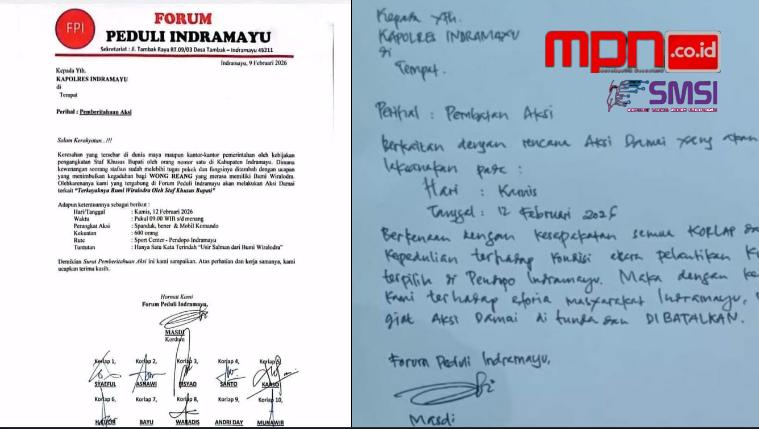 FPI
FORUM
PEDULI INDRAMAYU
Sekretariat : Jl. Tambak Raya RT.09/03 Desa Tambak – Indramayu 45211
Indramayu, 9 Februari 2026
Kepada Yth.
KAPOLRES INDRAMAYU
di
Tempat
Perihal : Pemberitahuan Aksi
Salam Kerakyatan..!!!
Keresahan yang tersebar di dunia maya maupun kantor-kantor pemerintahan oleh kebijakan
pengangkatan Staf Khusus Bupati oleh orang nomor satu di Kabupaten Indramayu. Dimana
kewenangan seorang stafsus sudah melebihi tugas pokok dan fungsinya ditambah dengan ucapan
yang menimbulkan kegaduhan bagi WONG REANG yang merasa memiliki Bumi Wiralodra.
Olehkarenanya kami yang tergabung di Forum Peduli Indramayu akan melakukan Aksi Damai
terkait "Terkoyaknya Bumi Wiralodra Oleh Staf Khusus Bupati"
Adapun ketentuannya sebagai berikut :
Hari/Tanggal : Kamis, 12 Februari 2026
Waktu : Pukul 09.00 WIB s/d menang
Perangkat Aksi : Spanduk, bener & Mobil Komando
Kekuatan : 600 orang
Rute : Sport Center - Pendopo Indramayu
Tuntutan : Hanya Satu Kata Terindah "Usir Salman dari Bumi Wiralodra"
Demikian Surat Pemberitahuan Aksi ini kami sampaikan. Atas perhatian dan kerja samanya, kami
ucapkan terima kasih.
Hormat Kami
Forum Peduli Indramayu,
MASDI
Kordum
Korlap 1, Korlap 2, Korlap 3, Korlap 4, Korlap 5,
SYAEFUL ASNAWI SANTO
Korlap 6, Korlap 7, Korlap 8, Korlap 9, Korlap 10,
BAYU ANDRI DAY MUNAWIR
Kepada Yth.
KAPOLRES INDRAMAYU
di
Tempat.
mpn.co.id
SMSI
Perihal : Pembatalan Aksi
Berkaitan dengan rencana Aksi Damai yang akan
laksanakan pada :
Hari : Kamis
Tanggal : 12 Februari 2026
Berkenaan dengan kesepakatan semua KORLAP
Kepedulian terhadap kondisi acara pelantikan
terpilih di Pendopo Indramayu. Maka dengan
kami terhadap eforia masyarakat Indramayu,
giat Aksi Damai di tunda dan DIBATALKAN.
Forum Peduli Indramayu,
Masdi